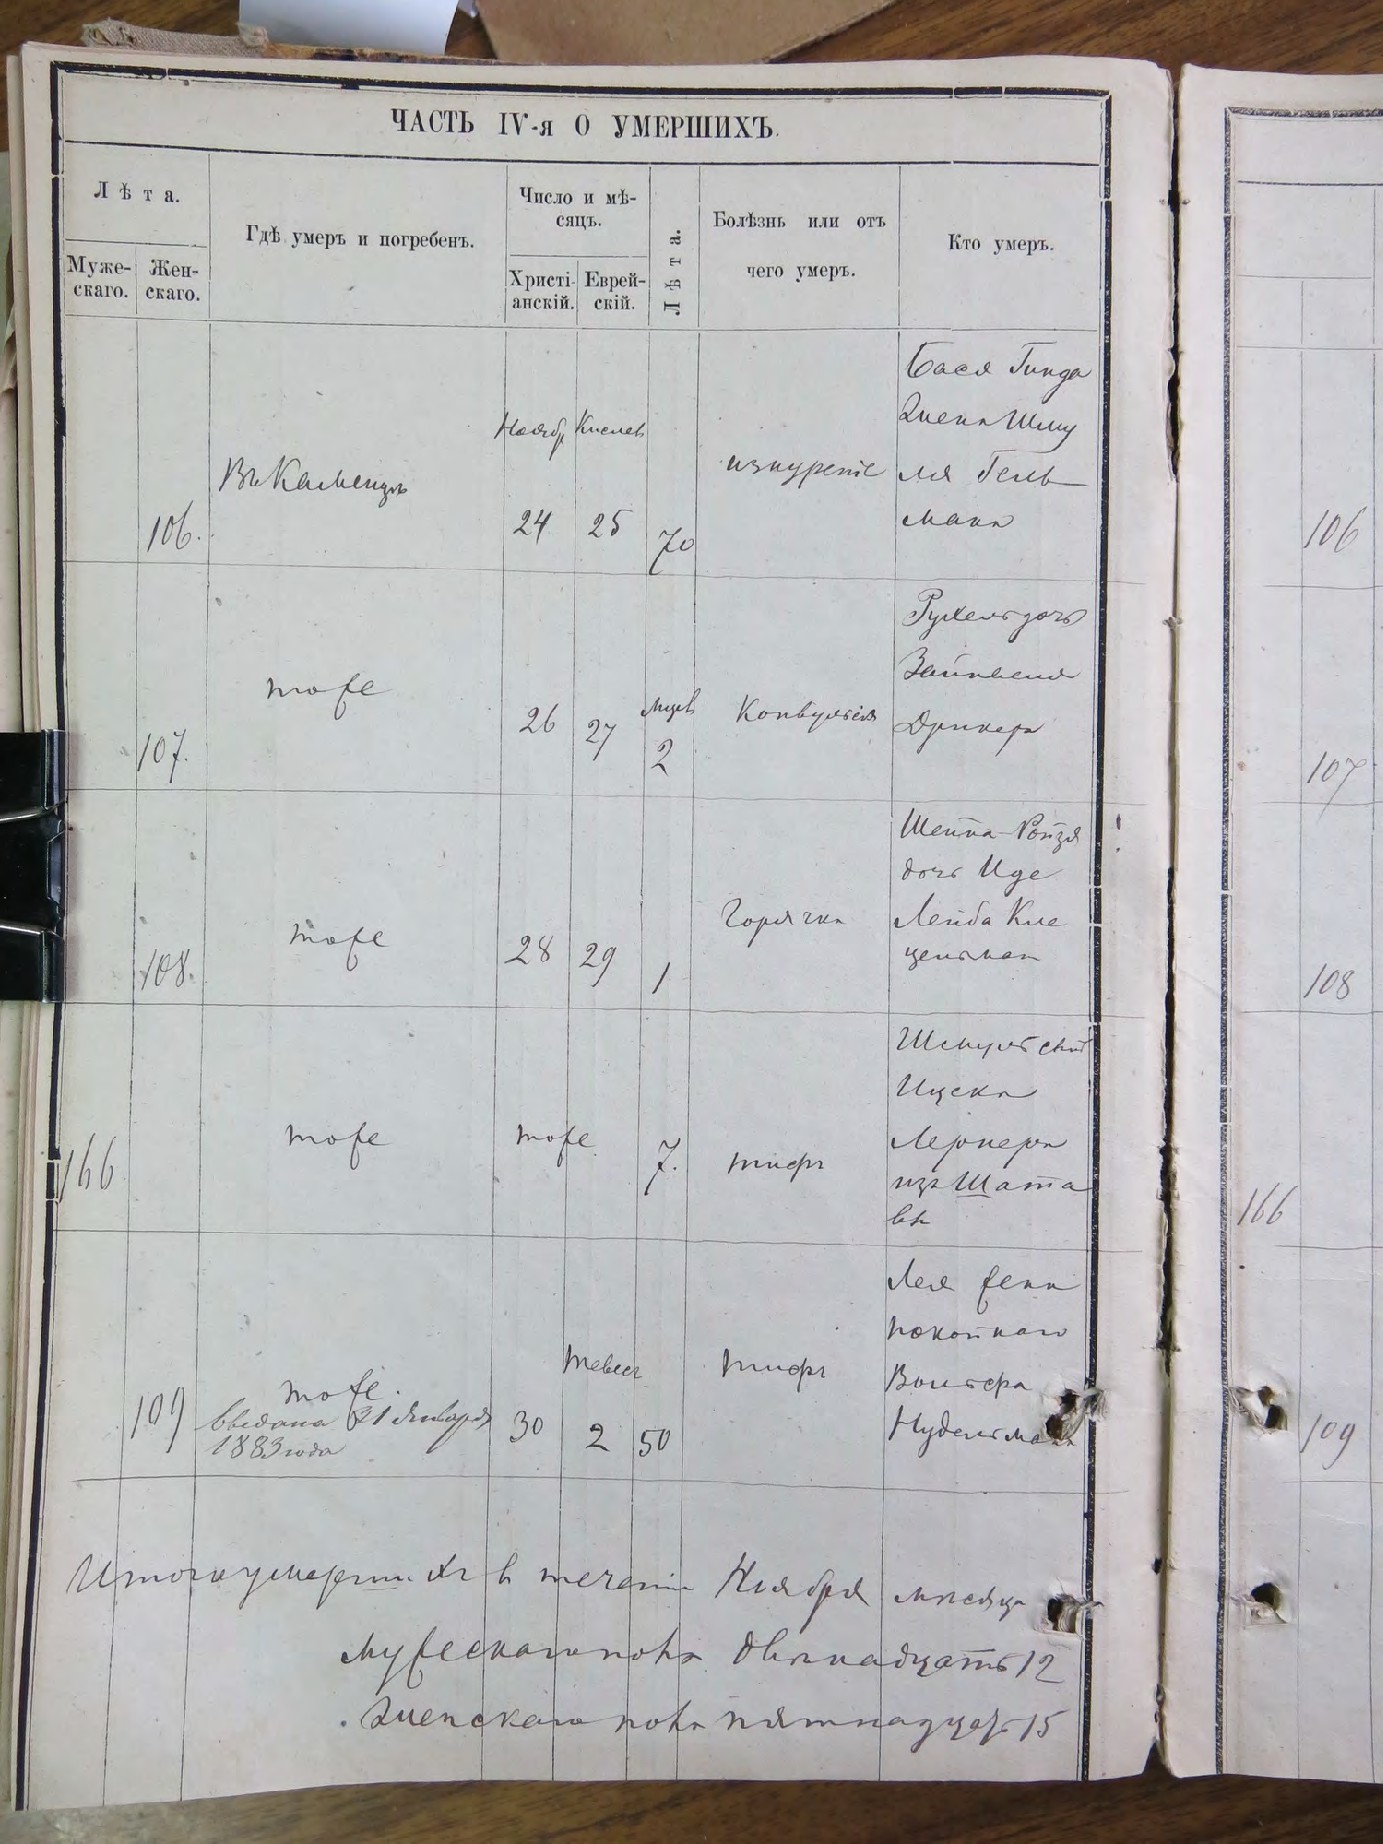 ЧАСТЬ IV-я О УМЕРШИХЪ.
Лѣта.
Муже-
скаго.
Жен-
скаго.
Гдѣ умеръ и погребенъ.
Число и мѣ-
сяцъ.
Христі-
анскій.
Еврей-
скій.
Лѣта.
Болѣзнь или отъ
чего умеръ.
Кто умеръ.
106.
Въ Каменцѣ
Ноябр
24
Кислев
25
70
изнуреніе
Бася Гинда
жена Шму
ля Гель
мана
106
107.
тоже
26
27
мцев
2
Конвульсія
Рухель дочь
Зайнвеля
Дрикера
107
108.
тоже
28
29
1
Горячка
Шейна-Ройзя
дочь Иде
Лейба Кле
цельман
108
166
тоже
тоже
7.
тифъ
Шмуль сынъ
Ицска
Лернера
изъ Шата
вы
166
109
тоже.
выдана 21 Января
1883 года
30
Тевес
2
50
тифъ
Лея жена
покойнаго
Волтера
Нудельмана
109
Итого умершихъ в течении Ноября месяца
мужескаго пола двенадцать 12
женскаго пола пятнадцать 15